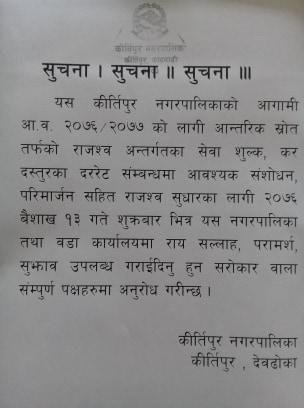 कीर्तिपुर नगरपालिका
कीर्तिपुर, काठमाडौं
सुचना । सुचना ॥ सुचना ॥।
यस कीर्तिपुर नगरपालिकाको आगामी
आ.व. २०७६/२०७७ को लागी आन्तरिक स्रोत
तर्फको राजश्व अन्तर्गतका सेवा शुल्क, कर
दस्तुरका दररेट सम्वन्धमा आवश्यक संशोधन,
परिमार्जन सहित राजश्व सुधारका लागी २०७६
बैशाख १३ गते शुक्रबार भित्र यस नगरपालिका
तथा वडा कार्यालयमा राय सल्लाह, परामर्श,
सुझाव उपलब्ध गराईदिनु हुन सरोकार वाला
संम्पुर्ण पक्षहरुमा अनुरोध गरीन्छ ।
कीर्तिपुर नगरपालिका
कीर्तिपुर , देवढोका